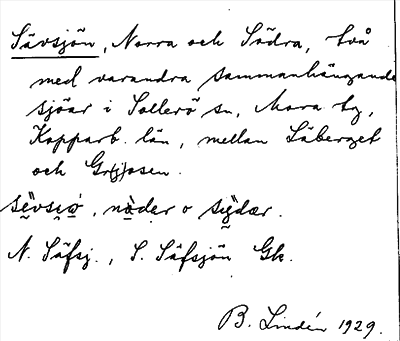 Sävsjön, Norra och Södra, två
med varandra sammanhängande
sjöar i Sollerö sn, Mora tg,
Kopparb. län, mellan Läberget
och Gr(j)osen.
sävsjọ, nòder o sỳdær.
N. Säfsj., S. Säfsjön Gk.
B. Lindén 1929.